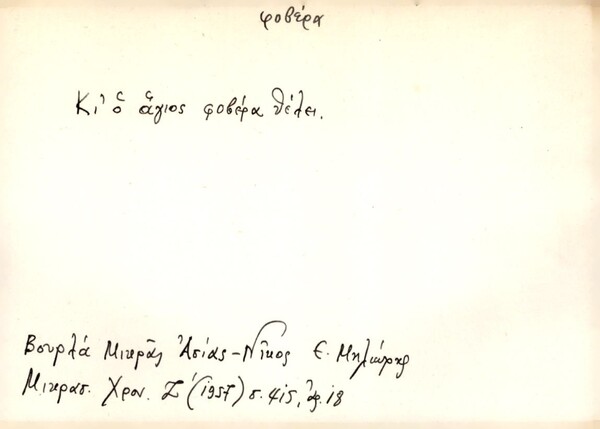 φοβέρα
Κι' ὁ ἅγιος φοβέρα θέλει.
Βουρλά Μικρᾶς Ἀσίας - Νῖκος Ε. Μηλιώρης
Μικρασ. Χρον. Ζ' (1957) σ. 415, ἀρ. 18